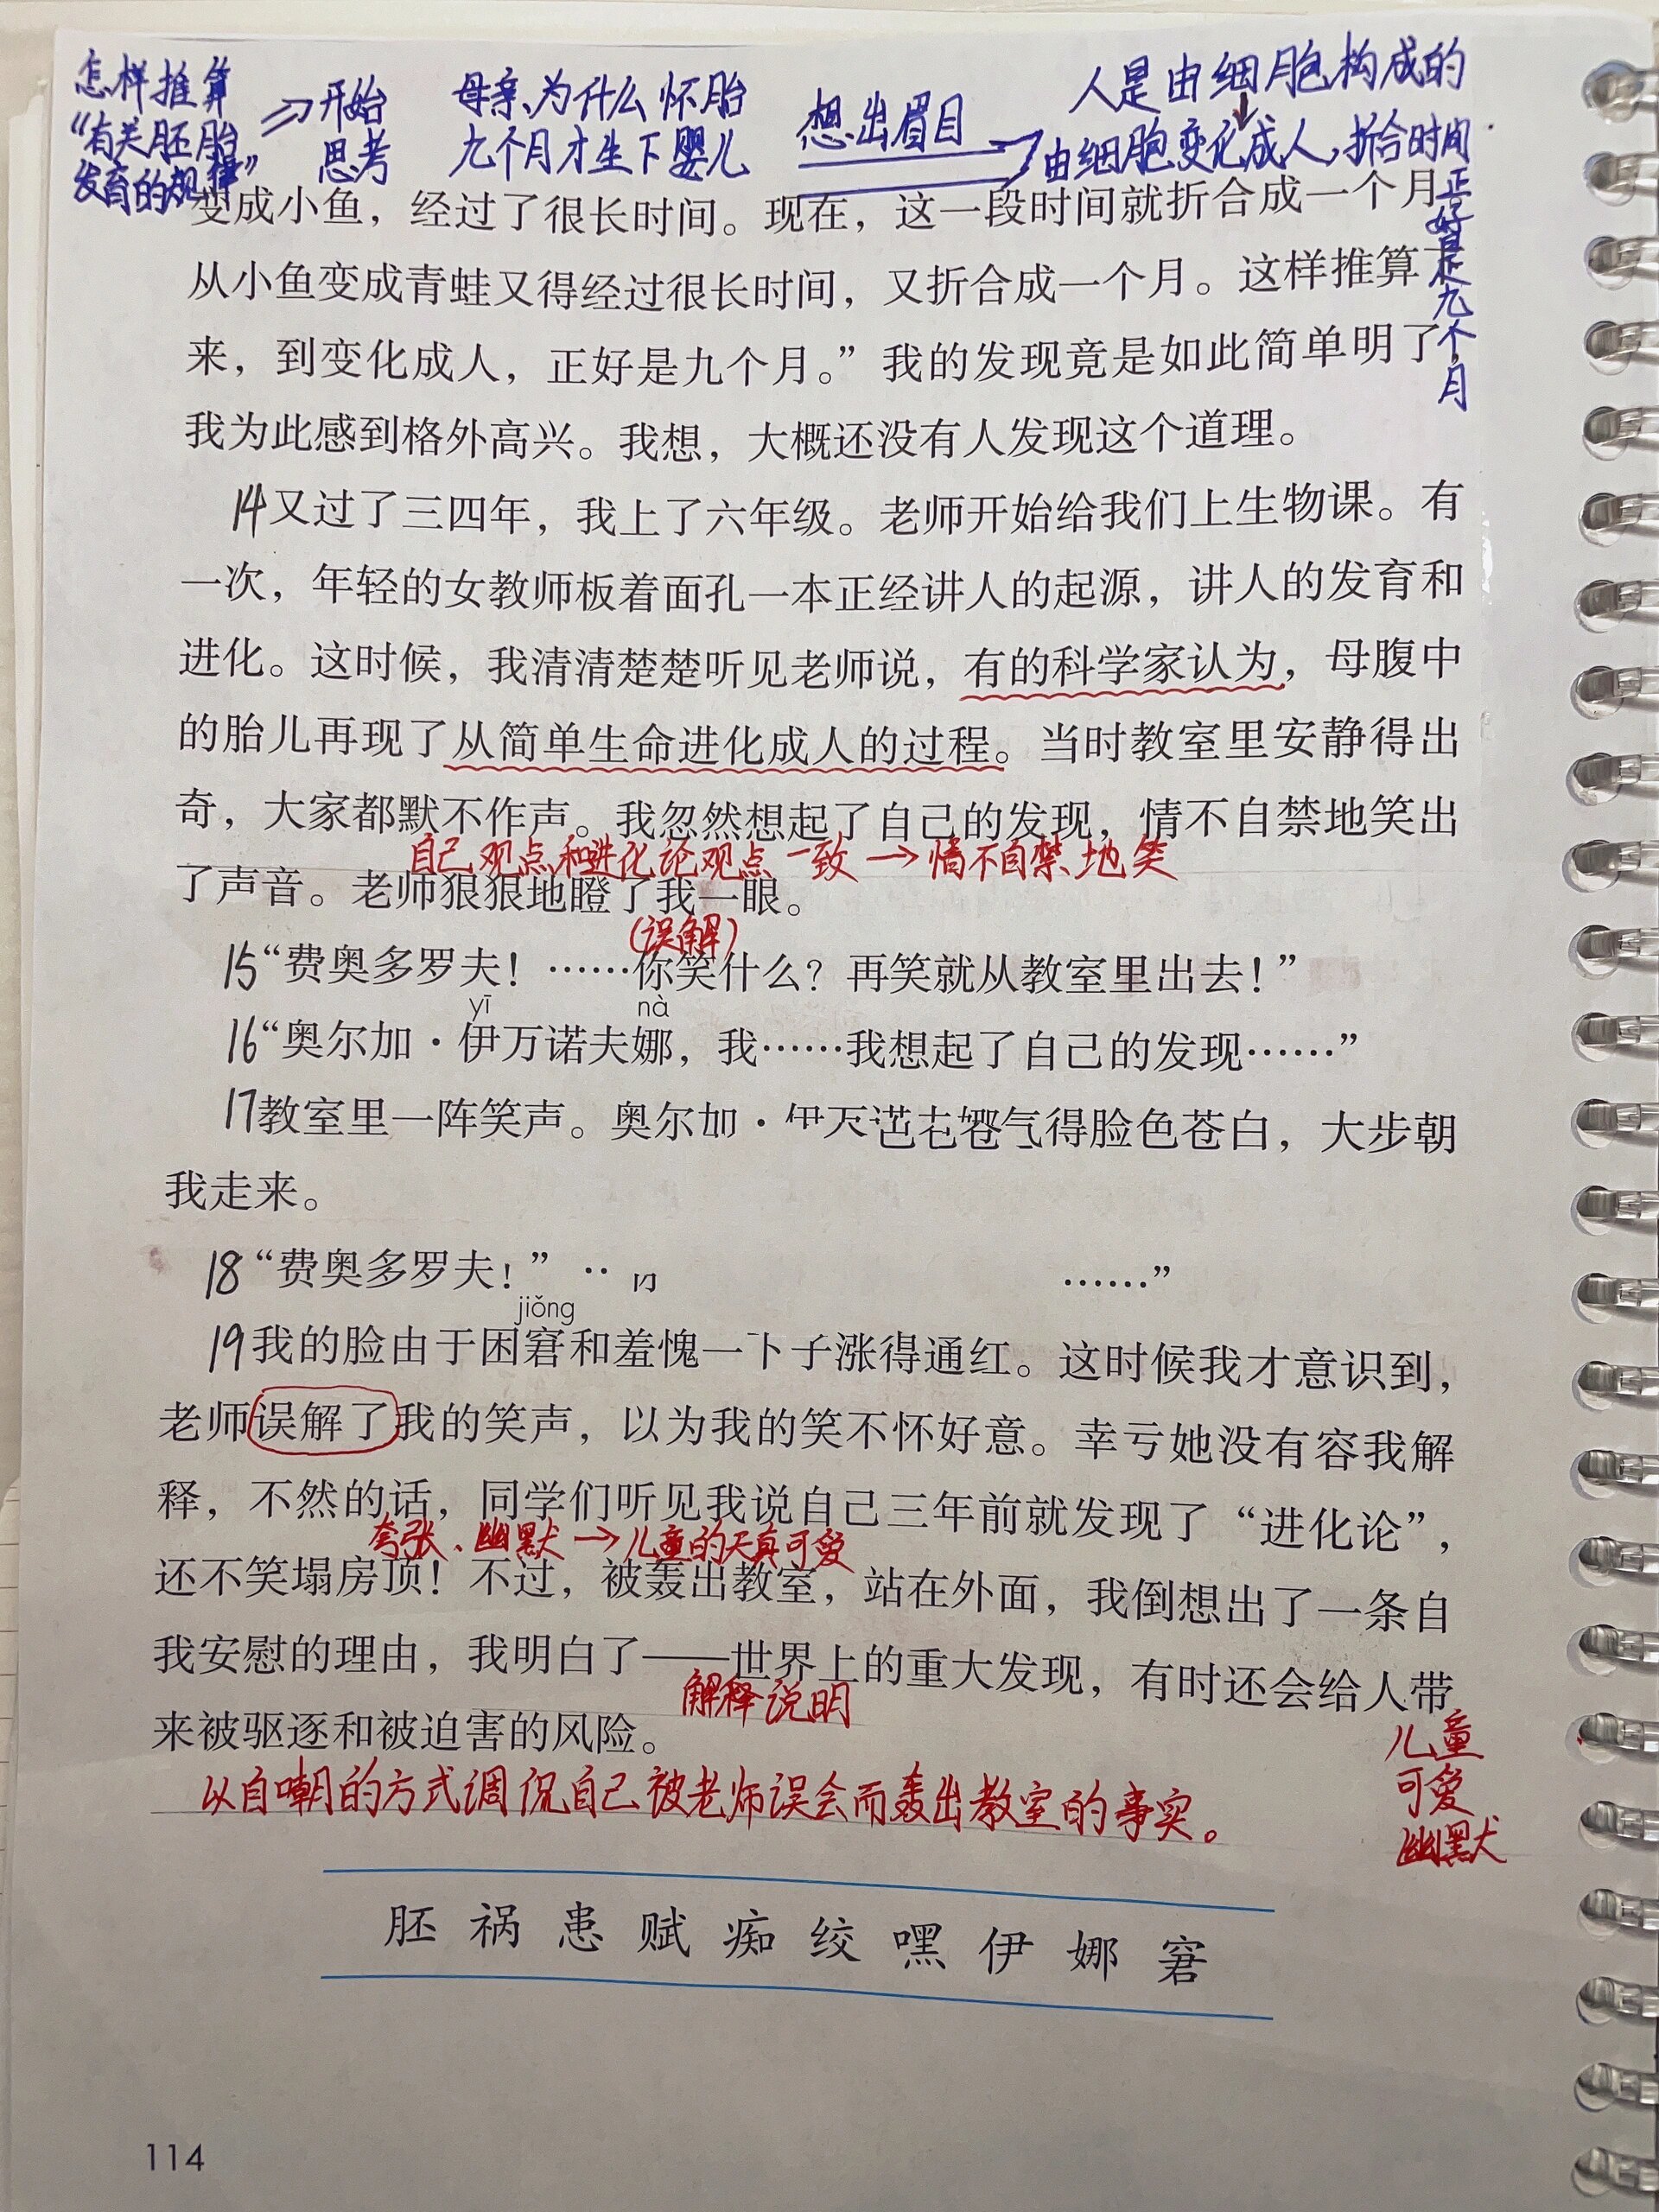 怎样推算
“有关胚胎
发育的规律”
开始
思考
母亲为什么怀胎
九个月才生下婴儿
想出眉目
人是由细胞构成的
由细胞变化成人，折合时间
正好是九个月
变成小鱼，经过了很长时间。现在，这一段时间就折合成一个月
从小鱼变成青蛙又得经过很长时间，又折合成一个月。这样推算
来，到变化成人，正好是九个月。”我的发现竟是如此简单明了
我为此感到格外高兴。我想，大概还没有人发现这个道理。
14又过了三四年，我上了六年级。老师开始给我们上生物课。有
一次，年轻的女教师板着面孔一本正经讲人的起源，讲人的发育和
进化。这时候，我清清楚楚听见老师说，有的科学家认为，母腹中
的胎儿再现了从简单生命进化成人的过程。当时教室里安静得出
奇，大家都默不作声。我忽然想起了自己的发现，情不自禁地笑出
自己观点和进化论观点一致→情不自禁地笑
了声音。老师狠狠地瞪了我一眼。
（误解）
15“费奥多罗夫！……你笑什么？再笑就从教室里出去！”
yī nà
16“奥尔加·伊万诺夫娜，我……我想起了自己的发现……”
17教室里一阵笑声。奥尔加·气得脸色苍白，大步朝
我走来。
18“费奥多罗夫！” ……”
jiǒng
19我的脸由于困窘和羞愧一下子涨得通红。这时候我才意识到，
老师误解了我的笑声，以为我的笑不怀好意。幸亏她没有容我解
释，不然的话，同学们听见我说自己三年前就发现了“进化论”，
夸张、幽默→儿童的天真可爱
还不笑塌房顶！不过，被轰出教室，站在外面，我倒想出了一条自
我安慰的理由，我明白了——世界上的重大发现，有时还会给人带
解释说明
来被驱逐和被迫害的风险。
儿童
可爱
幽默
以自嘲的方式调侃自己被老师误会而轰出教室的事实。
胚 祸 患 赋 痴 绞 嘿 伊 娜 窘
114